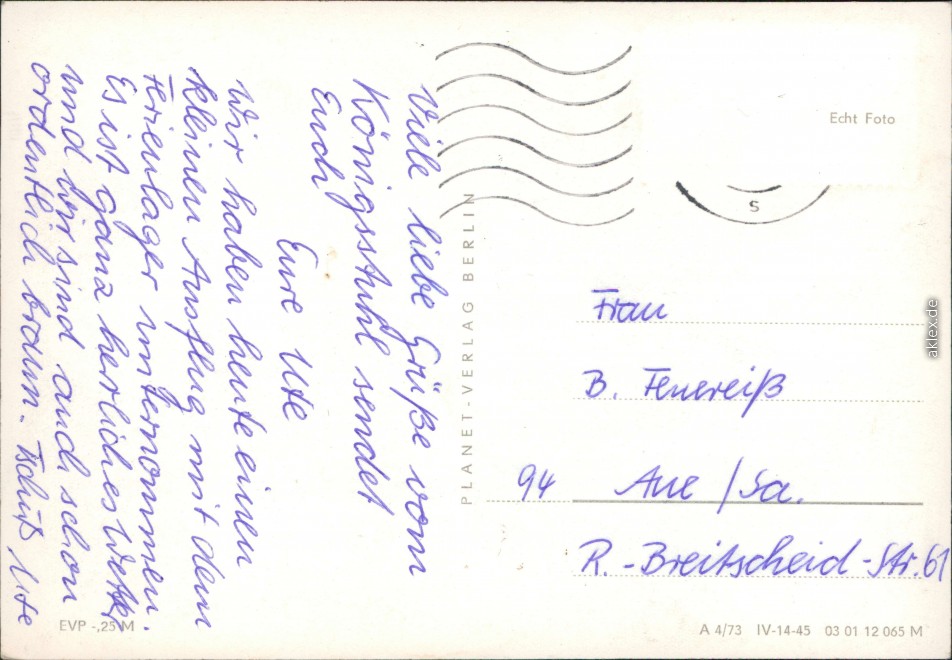 Viele liebe Grüße vom
Königsstuhl sendet
Euch
Eure Ute
Wir haben heute einen
kleinen Ausflug mit dem
Ferienlager unternommen.
Es ist ganz herrliches Wetter
und wir sind auch schon
ordentlich braun. Tschüß Ute
PLANET-VERLAG BERLIN
Echt Foto
S
Frau
B. Feuereiß
94 Aue / Sa.
R.-Breitscheid-Str. 61
EVP -,25 M
A 4/73 IV-14-45 03 01 12 065 M
aklex.de